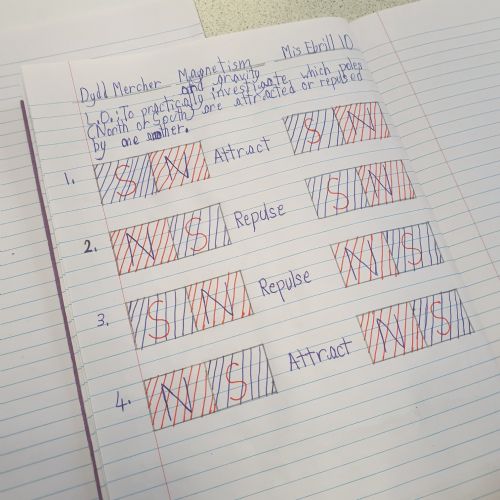 Dydd Mercher Magnetism Mis Ebrill 10
and gravity
L.O.: To practically investigate which poles
(North or South) are attracted or repulsed
by one another.
1. S N Attract S N
2. N S Repulse S N
3. S N Repulse N S
4. N S Attract N S